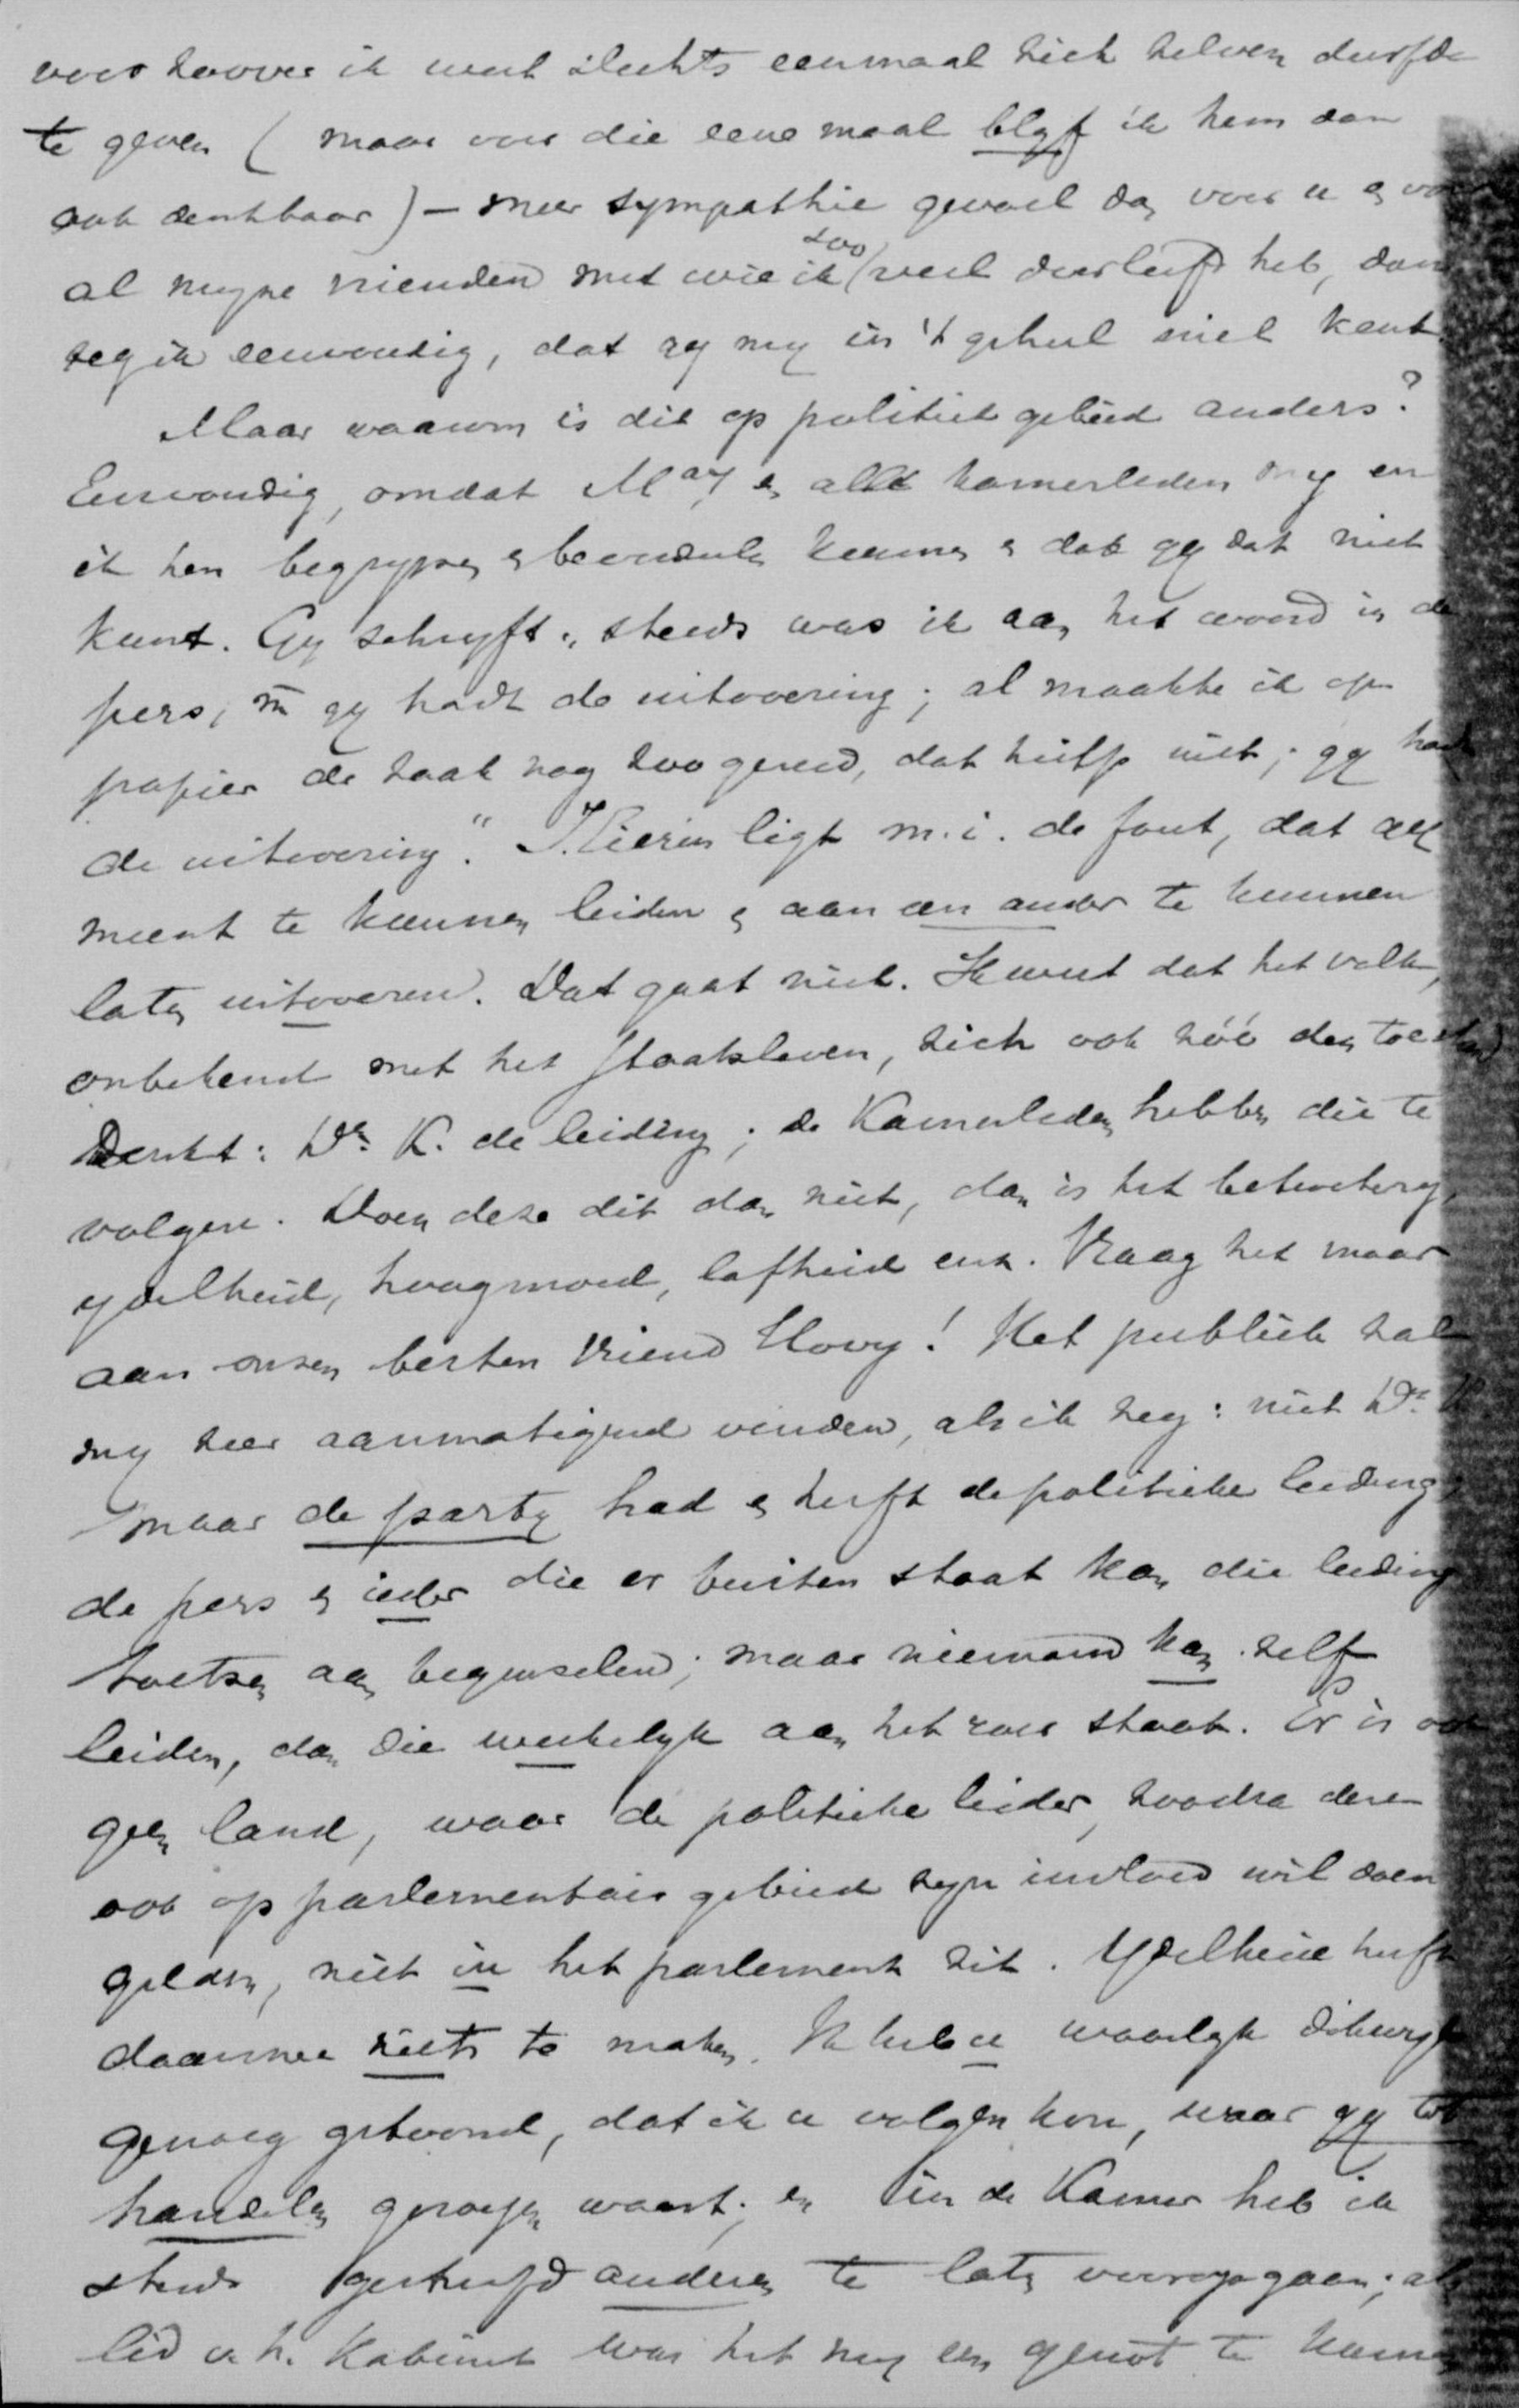 voor zoover ik weet slechts eenmaal zich zelven durfde
te geven (maar voor die eene maal blyf ik hem dan
ook dankbaar) — meer sympathie gevoel dan voor u en voor
al myne vrienden met wie ik zoo veel doorleefd heb, dan
zeg ik eenvoudig, dat gy my in 't geheel niet kent.
Maar waarom is dit op politiek gebied anders?
Eenvoudig, omdat May en alle kamerleden my en
ik hen begrypen en beoordeelen kunnen en dat gy dat niet
kunt. Gy schryft: „steeds was ik aan het woord in de
pers, gy hadt de uitvoering; al maakte ik op
papier de zaak nog zoo gereed, dat hielp niet; gy hadt
de uitvoering." Hierin ligt m.i. de fout, dat gy
meent te kunnen leiden en aan een ander te kunnen
laten uitvoeren. Dat gaat niet. Ik weet dat het volk,
onbekend met het Staatsleven, zich ook zóó den toestand
denkt: Dr. K. de leiding; de Kamerleden hebben die te
volgen. Doen deze dit dan niet, dan is het betweterij,
ydelheid, hoogmoed, lafheid enz. Vraag het maar
aan onzen besten vriend Hovy! Het publiek zal
my zeer aanmatigend vinden, als ik zeg: niet Dr. K
maar de party had en heeft de politieke leiding;
de pers en ieder die er buiten staat kan die leiding
toetsen aan beginselen; maar niemand kan zelf
leiden, dan die werkelyk aan het roer staat. Er is ook
geen land, waar de politieke leider, zoodra deze
ook op parlementair gebied zyn invloed wil doen
gelden, niet in het parlement zit. Ydelheid heeft
daarmee niets te maken. Ik heb u waarlyk dikwyls
genoeg getoond, dat ik u volgen kon, waar gy tot
handelen geroepen waart; en in de Kamer heb ik
steeds getracht anderen te laten voorop gaan; als
lid v. h. Kabinet was het my een genot te kunnen